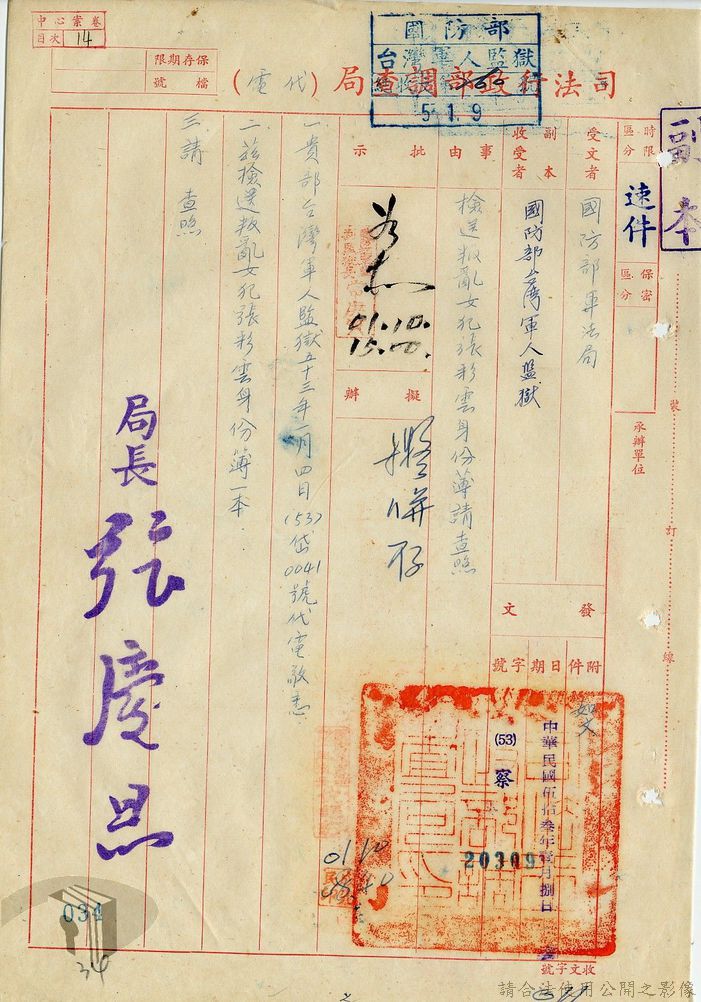 中心案卷
目次 14
保存期限
檔號
國防部
台灣軍人監獄
51.9
司法行政部調查局(代電)
副本
時限區分
速件
保密區分
承辦單位
受文者
國防部軍法局
副本收受者
國防部台灣軍人監獄
事由
檢送叛亂女犯張彩雲身份簿請查照
批示
01.10.
15.00.
擬辦
擬併存
發文
附件
日期
字號
如文
中華民國伍拾叁年壹月捌日
(53)
察
20309
一、貴部台灣軍人監獄五十三年一月四日(53)岱0041號代電敬悉
二、茲檢送叛亂女犯張彩雲身份簿一本
三、請 查照
局長 張慶恩
01 10
收文字號
裝
訂
線
034
34
請合法使用公開之影像